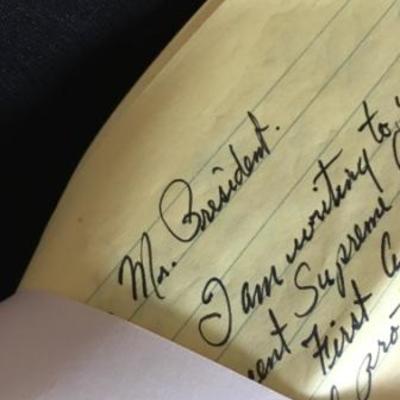 Mr. President.
I am writing to
ent Supreme
First
pro